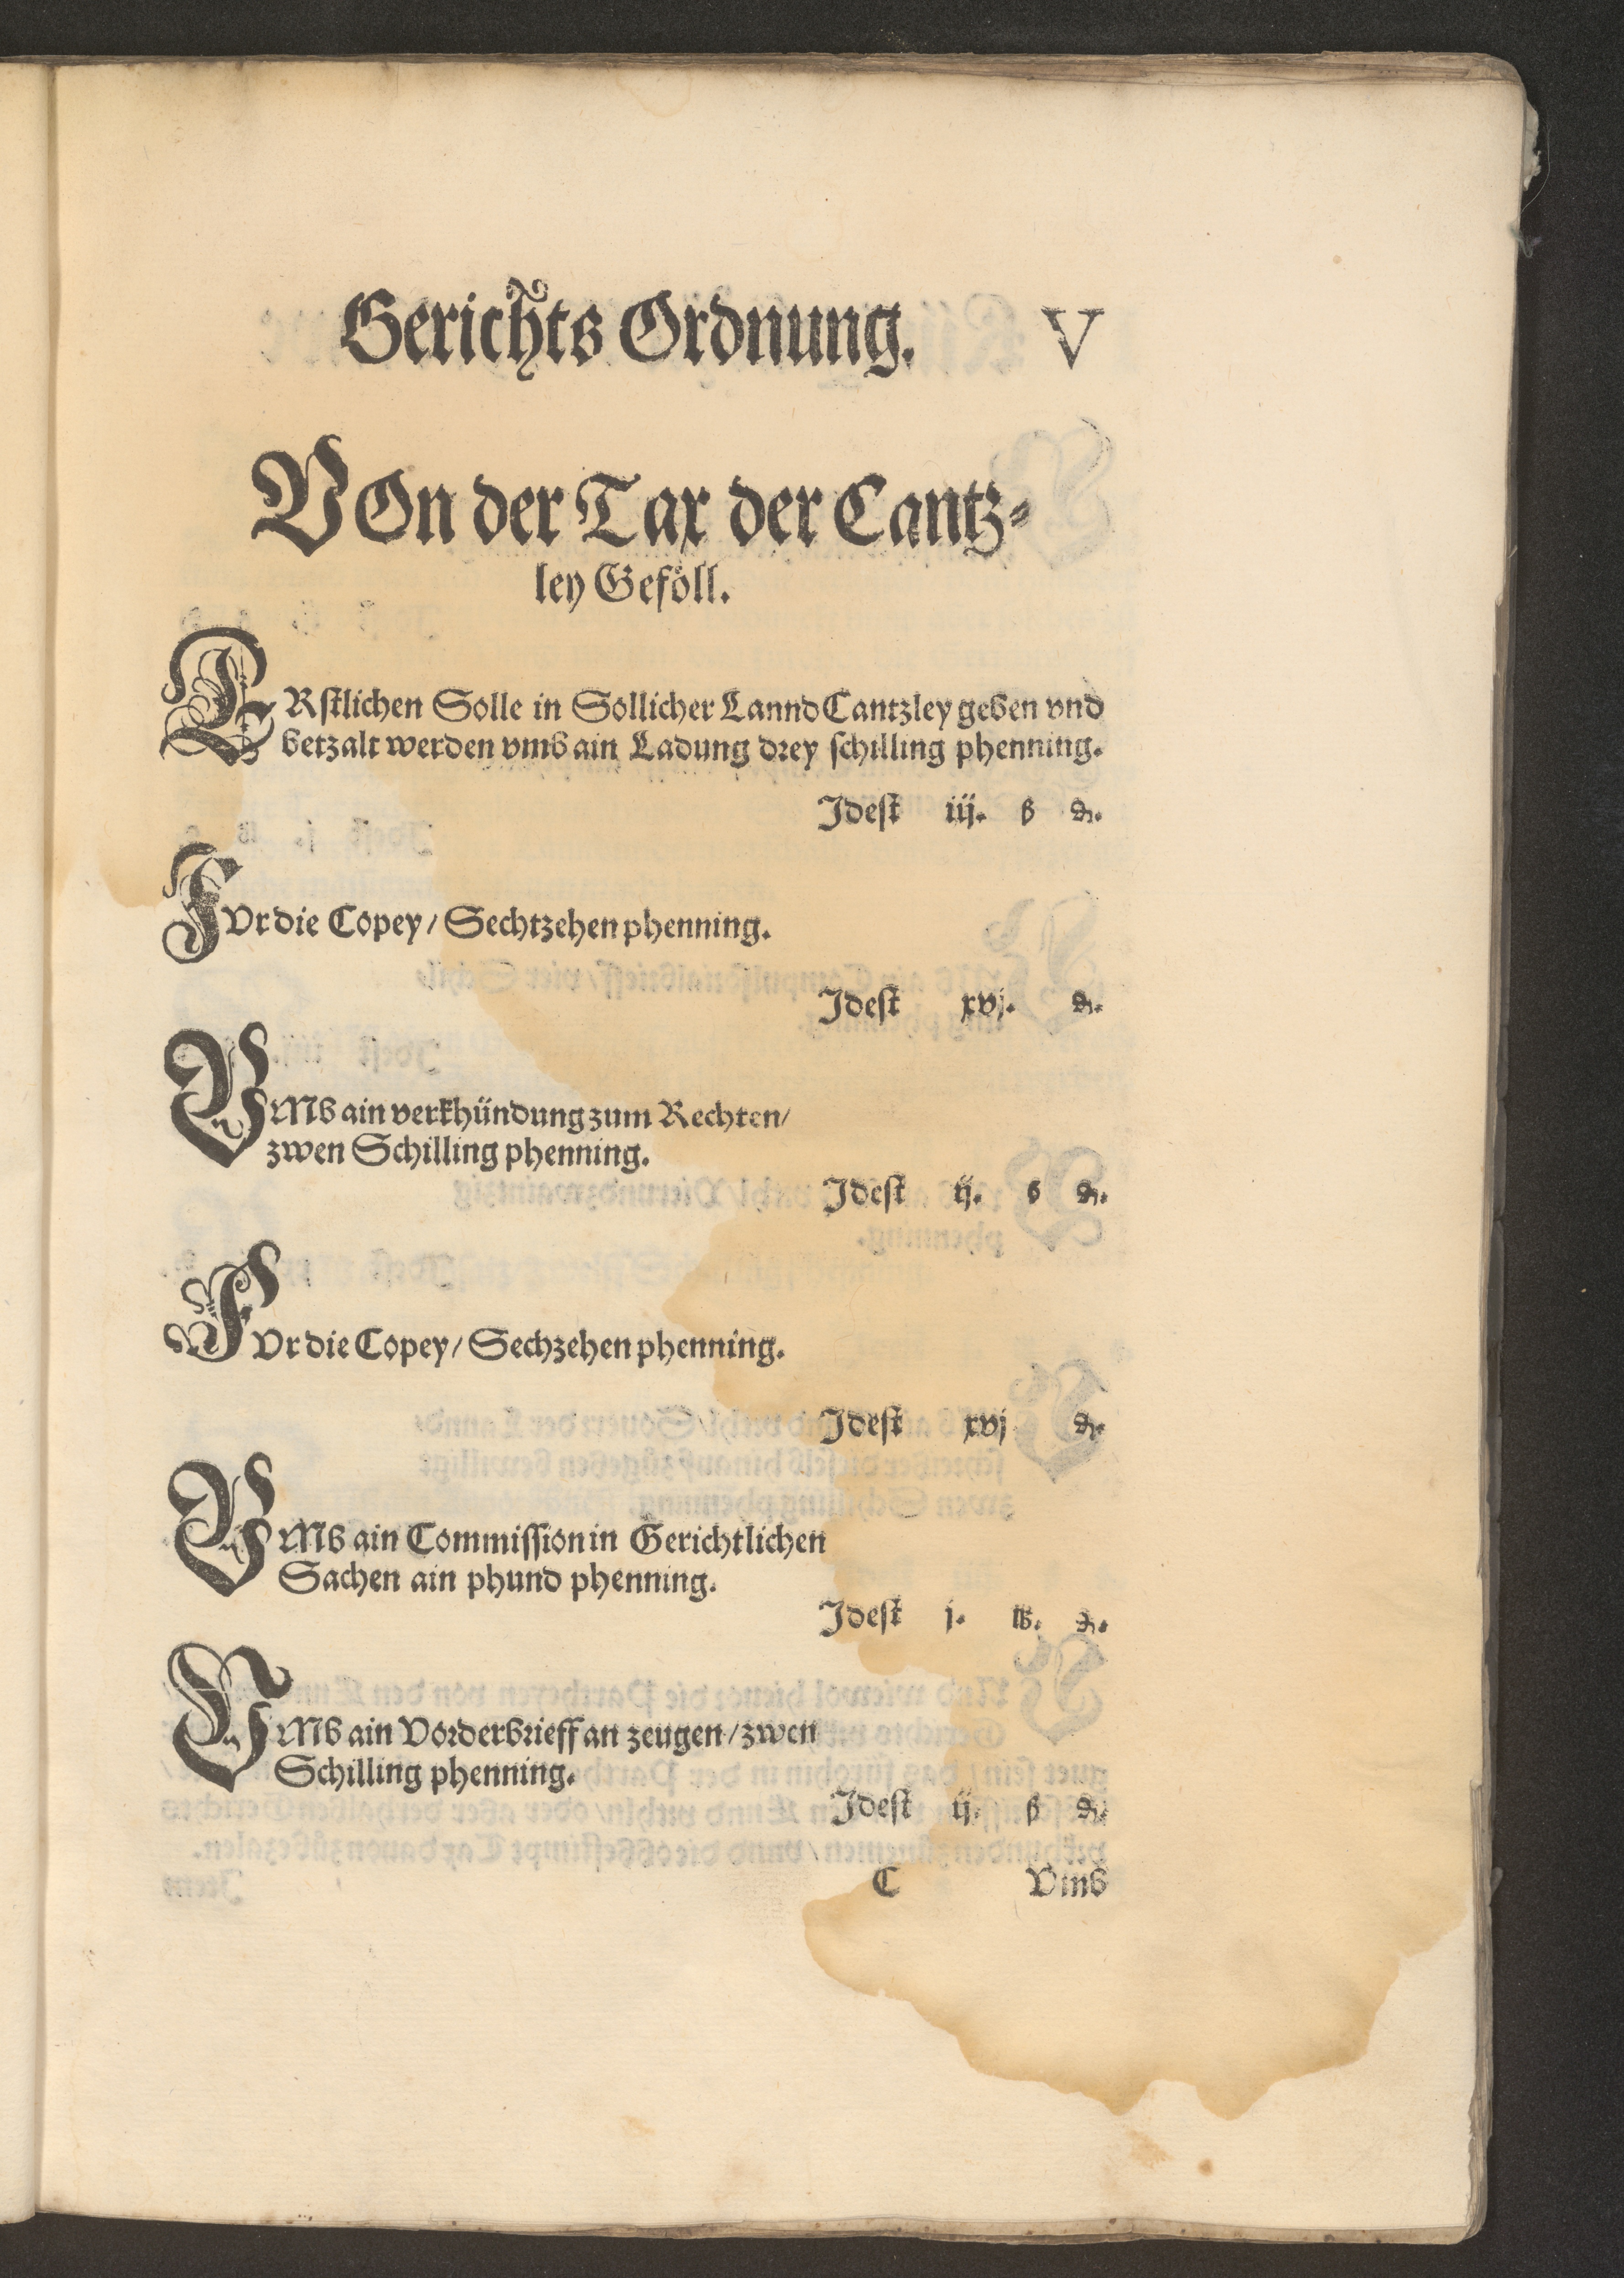 Gerichts Ordnung. V
VOn der Tax der Cantz-
ley Geföll.
ERstlichen Solle in Sollicher Lannd Cantzley geben vnd
betzalt werden vmb ain Ladung drey schilling phenning.
Idest iij. ß ₰.
FVr die Copey / Sechtzehen phenning.
Idest xvj. ₰.
VMb ain verkhündung zum Rechten /
zwen Schilling phenning.
Idest ij. ß ₰.
FVr die Copey / Sechzehen phenning.
Idest xvj ₰.
VMb ain Commission in Gerichtlichen
Sachen ain phund phenning.
Idest j. ℔. ₰.
VMb ain Vorderbrieff an zeugen / zwen
Schilling phenning.
Idest ij. ß ₰.
C Vmb